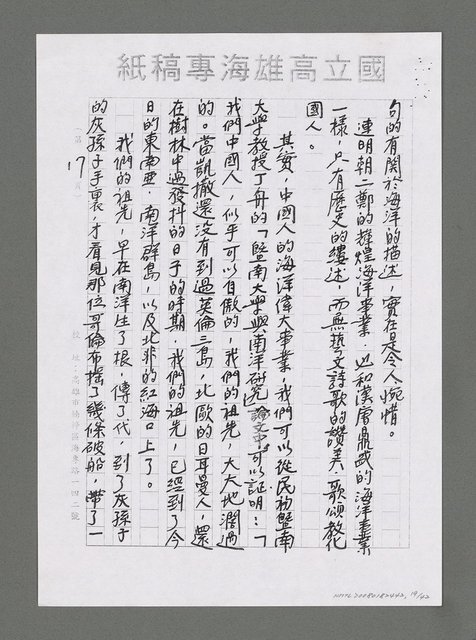 國立高雄海專稿紙
句的有關於海洋的描述，實在是令人惋惜。
連明朝二鄭的輝煌海洋事業，也和漢唐鼎武的海洋事業
一樣，只有歷史的縷述，而無藝文詩歌的讚美，歌頌教化
國人。
其實，中國人的海洋偉大事業，我們可以從民初暨南
大學教授丁舟的「暨南大學與南洋研究論文中可以証明：「
我們中國人，似乎可以自傲的，我們的祖先，大大地濶過
的。當凱撒還沒有到過英倫三島，北歐的日耳曼人，還
在樹林中過發抖的日子的時期，我們的祖先，已經到了今
日的東南亜，南洋群島，以及北非的紅海口上了。
我們的祖先，早在南洋生了根，傳了代，到了灰孫子
的灰孫子手裏，才看見那位哥倫布搖了幾條破船，帶了一
（第17頁）
校址：高雄市楠梓區海專路一四二號
19/42